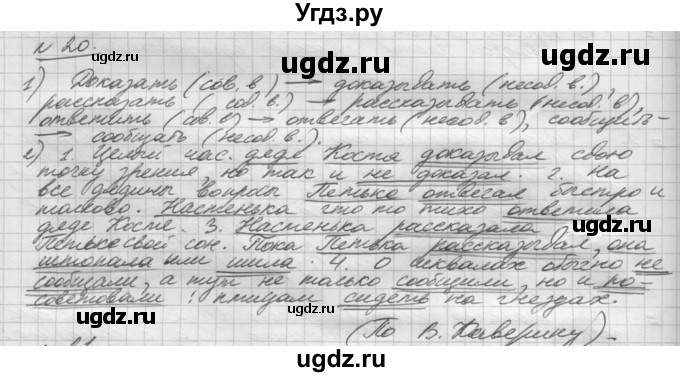 Угдз.ру
№ 20.
1) Доказать (сов. в) → доказывать (несов. в.),
рассказать (сов. в) → рассказывать (несов. в),
ответить (сов. в) → отвечать (несов. в), сообщить
→ сообщать (несов. в.).
2) 1. Целый час деде Костя доказывал свою
точку зрения, но так и не доказал. 2. На
все дедины вопросы Петька отвечал быстро и
толково. Настенька что то тихо ответила
деде Косте. 3. Настенька рассказала
Петьке свой сон. Пока Петька рассказывал, она
штопала или шила. 4. О шквалах обычно не
сообщали, а тут не только сообщили, но и по-
советовали: птицам сидеть на гнездах.
(По В. Каверину)
gdz.ru
ugdz.ru
ugdz.ru
gdz.ru
ugdz.ru
gdz.ru
ugdz.ru
gdz.ru
ugdz.ru
ugdz.ru